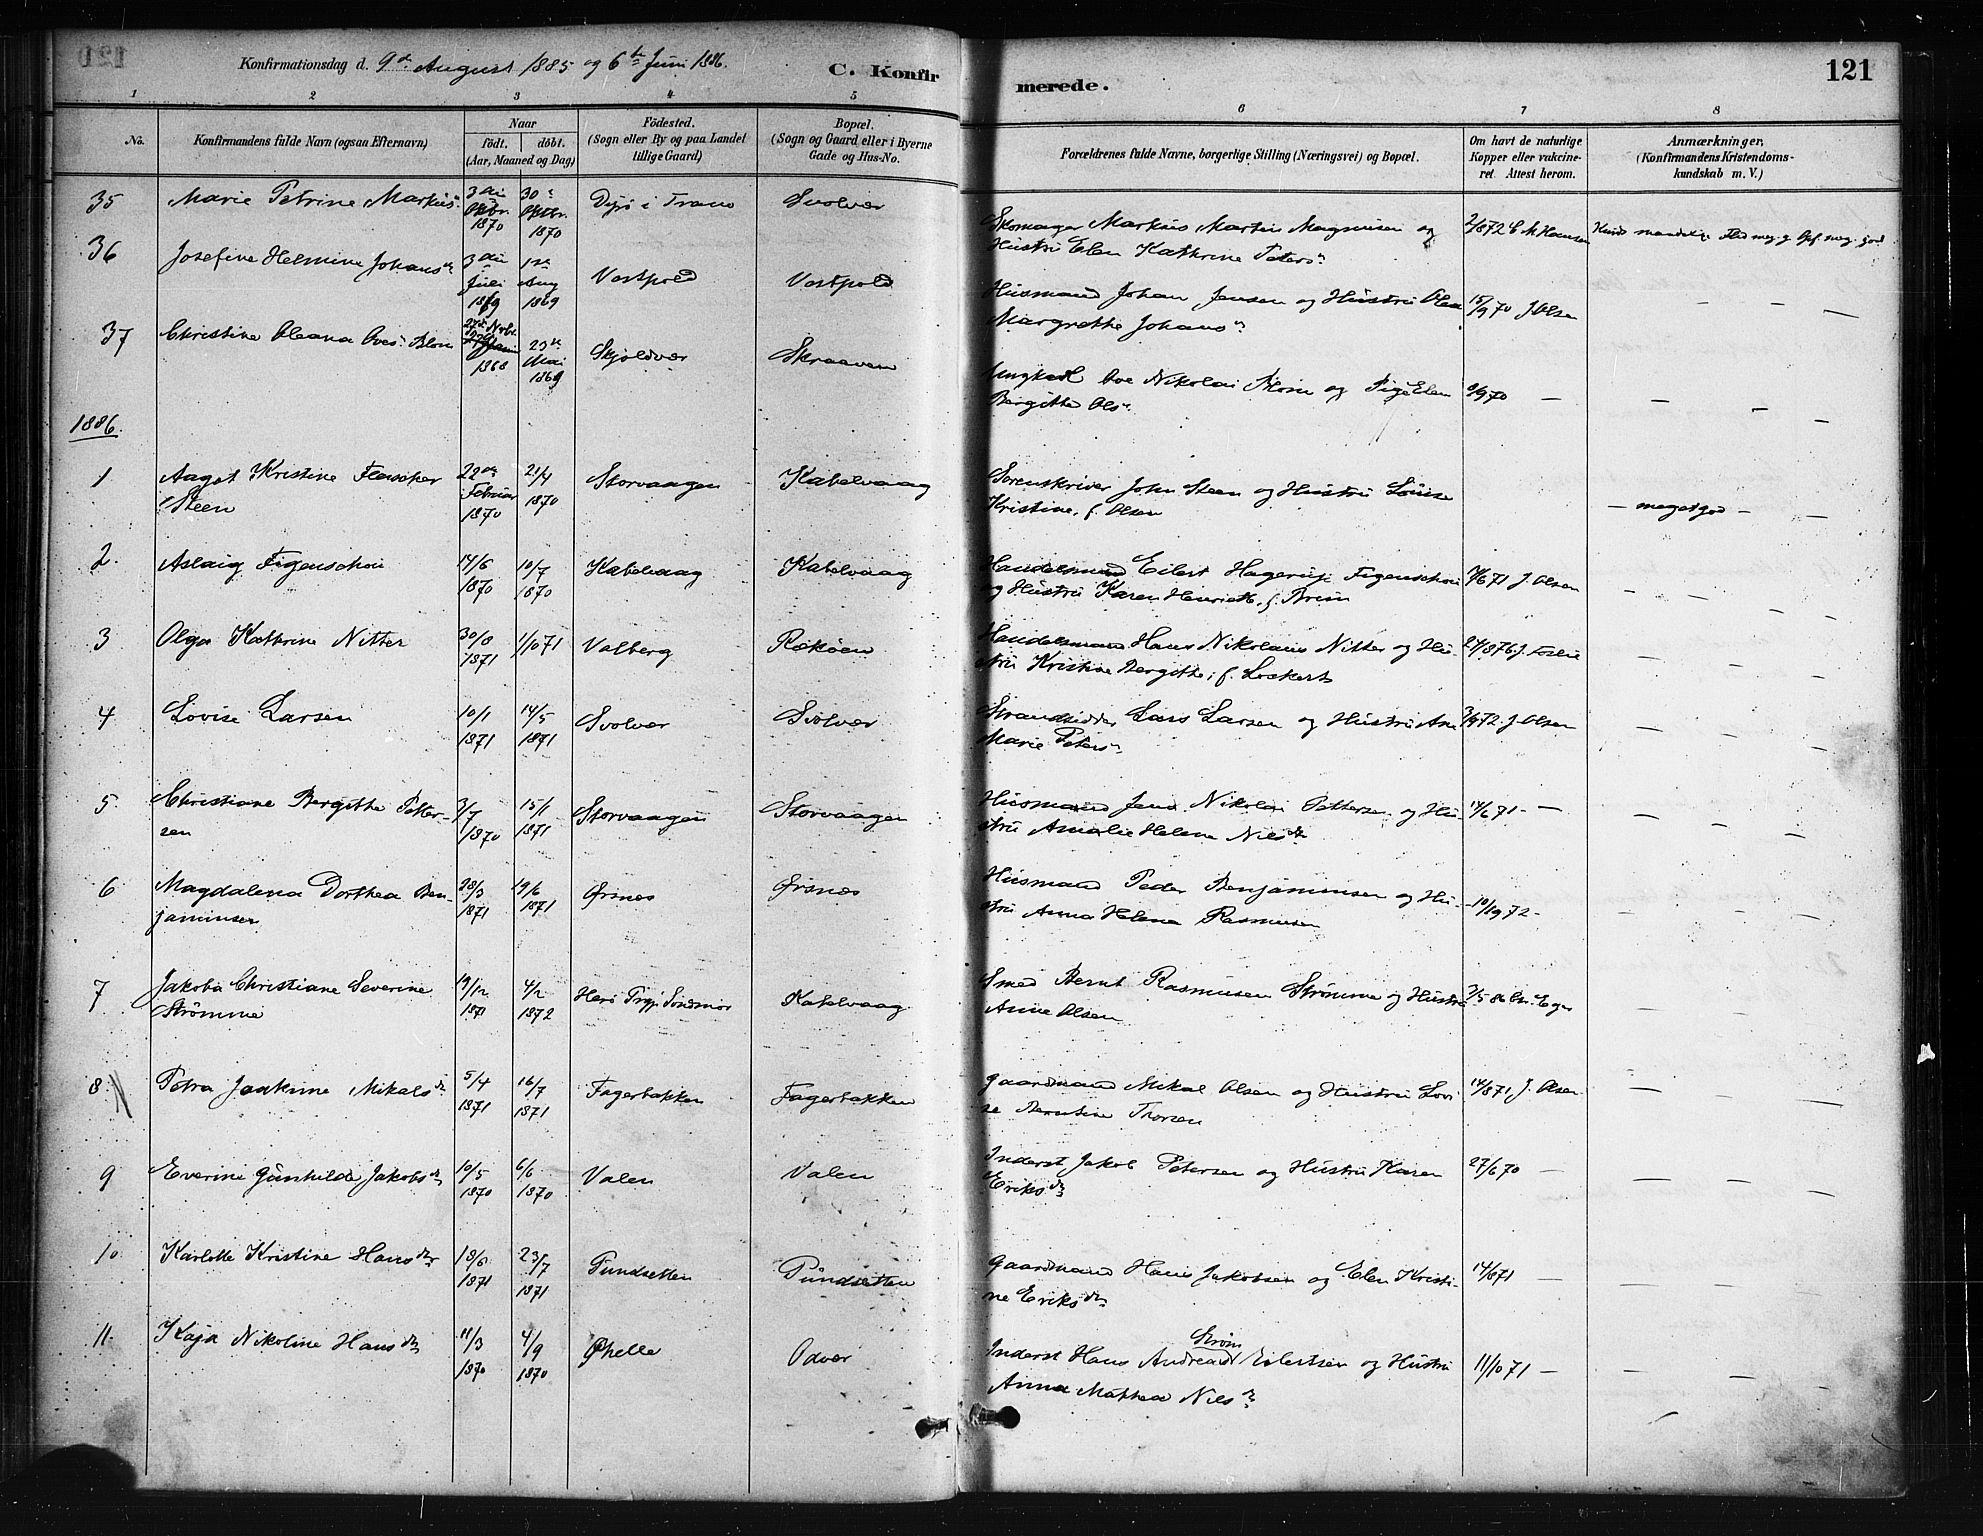 Konfirmationsdag d. 9de August 1885 og 6te Juni 1886.
C. Konfirmerede.
121
1 2 3 4 5 6 7 8
No.
Konfirmandens fulde Navn (ogsaa Efternavn)
Naar
födt. döbt.
(Aar, Maaned og Dag)
Födested.
(Sogn eller By og paa Landet
tillige Gaard)
Bopæl.
(Sogn og Gaard eller i Byerne
Gade og Hus-No.
Forældrenes fulde Navne, borgerlige Stilling (Næringsvei) og Bopæl.
Om havt de naturlige
Kopper eller vakcine-
ret. Attest herom.
Anmærkninger,
(Konfirmandens Kristendoms-
kundskab m. V.)
35 Marie Petrine Markus 3die Oktbr. 1870 30te Oktbr. 1870 Dyrö i Tranö Svolvær
Skomager Markus Martin Magnusen og
Hustru Elen Kathrine Peters
36 Josefine Helmine Johans 3die Juli 1869 1ste Aug 1869 Vestpold Vestpold
Husmand Johan Jensen og Hustru Olea 15/9 70 J Olsen
Margrethe Johans
37 Christine Oleana Oves Blom 1868 23de Mai 1869 Skjoldvær Skraaven
Ungkarl Ove Nikolai Blom og Pige Elen
Bergitte Ols
1886.
1 Aaget Kristine Fleischer 22de Februar 1870 21/4 1870 Storvaagen Kabelvaag
Steen
Sorenskriver John Steen og Hustru Louise
Kristine, f. Olsen
– meget god –
2. Aslaug Figenschou 14/6 1870 10/7 1870 Kabelvaag Kabelvaag
Handelsmand Eilert Hagerup Figenschou 7/6 71 J. Olsen
og Hustru Karen Henriette, f. Brun
3 Olga Kathrine Nitter 30/8 1871 1/10 71 Valberg Rækøen
Handelsmand Hans Nikolaus Nitter og Hu-
stru Kristine Bergitte, f. Lockert
4 Lovise Larsen 10/1 1871 14/5 1871 Svolvær Svolvær
Strandsidder Lars Larsen og Hustru An 3/9 72. J. Olsen
Marie Peters
5 Christiane Bergitte Petter- 3/7 1870 15/1 1871 Storvaagen Storvaagen
sen
Husmand Jens Nikolai Pettersen og Hu- 14/6 71 –
stru Amalie Helene Nilsdr
6 Magdalena Dorthea Ben- 28/3 1871 19/6 1871 Ørsnes Ørsnes
jaminsen
Husmand Peder Benjaminsen og Hu-
stru Anna Helene Rasmusen
7 Jakoba Christiane Severine 19/12 1871 4/2 1872 Herö Prgj. Söndmör Kabelvaag
Strömme
Smed Bernt Rasmusen Strömme og Hustru
Anne Olsen
8 Petra Joakime Mikalsdr 5/4 1871 16/7 1871 Fagerbakken Fagerbakken
Gaardmand Mikal Olsen og Hustru Lovi- 14/8 71, J. Olsen
se Berntine Thorsen
9 Everine Gunhilde Jakobsdr 10/5 1870 6/6 1870 Valen Valen
Inderst Jakob Petersen og Hustru Karen 27/6 70 –
Eriksdr
10 Karlotte Kristine Hansdr 18/6 1871 23/7 1871 Pundsetten Pundsetten
Gaardmand Hans Jakobsen og Elen Kristi- 14/8 71 –
ne Eriksdr
11. Kaja Nikoline Hansdr 11/3 1870 4/9 1870 Ohelle Odvær
Ström
Inderst Hans Andreas Eilertsen og Hustru 11/10 71 –
Anna Mathea Nils